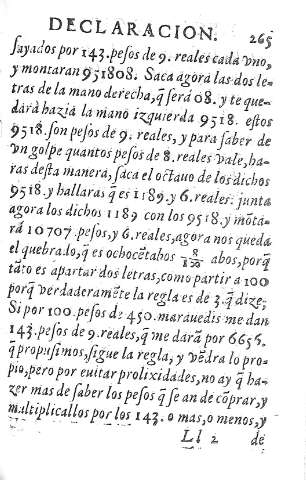 DECLARACION. 265
ſayados por 143. peſos de 9. reales cada vno,
y montaran 951808. Saca agora las dos le-
tras de la mano derecha, q̃ ſerá 08. y te que-
dará haziá la mano izquierda 9518. eſtos
9518. ſon peſos de 9. reales, y para ſaber de
vn golpe quantos peſos de 8. reales vale, ha-
ras deſta manera, ſaca el octauo de los dichos
9518. y hallaras q̃ es 1189. y 6. reales: junta
agora los dichos 1189 con los 9518. y mõta-
rá 10707. peſos, y 6. reales, agora nos queda
el quebrado, q̃ es ochocẽtabos 8/100 abos, porq̃
tãto es apartar dos letras, como partir a 100
porq̃ verdaderamẽte la regla es de 3. q̃ dize,
Si por 100. peſos de 450. marauedis me dan
143. peſos de 9. reales, q̃ me darã por 6656.
q̃ propuſimos, ſigue la regla, y vẽdra lo pro-
pio, pero por euitar prolixidades, no ay q̃ ha-
zer mas de ſaber los peſos q̃ ſe an de cõprar, y
multiplicallos por los 143. o mas, o menos, y
Ll 2 de